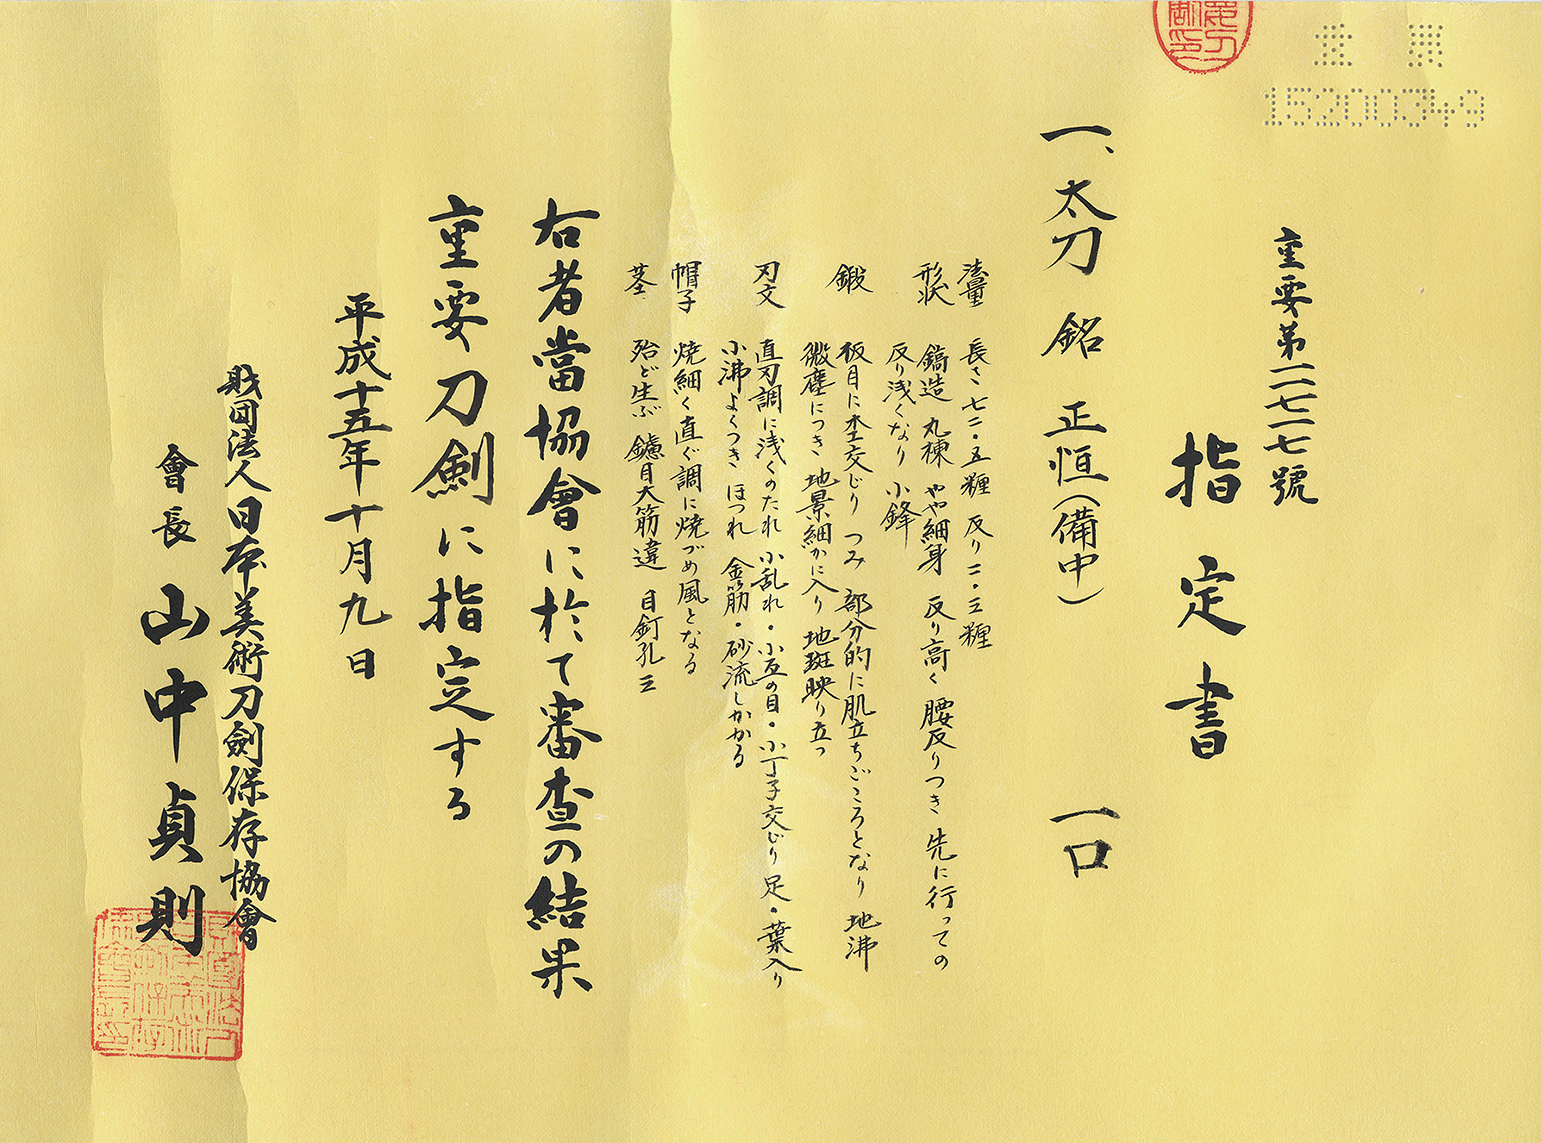 15200349
重要第一一七一七號
指定書
一、太刀 銘 正恒(備中) 一口
法量 長さ七二・五糎 反り二・三糎
形状 鎬造 丸棟 やや細身 反り高く 腰反りつき 先に行っての
反り浅くなり 小鋒
鍛 板目に杢交じり つみ 部分的に肌立ちごころとなり 地沸
微塵につき 地景細かに入り 地斑映り立つ
刃文 直刃調に浅くのたれ 小乱れ・小互の目・小丁子交じり 足・葉入り
小沸よくつき ほつれ 金筋・砂流しかかる
帽子 焼細く直ぐ調に焼づめ風となる
茎 殆ど生ぶ 鑢目大筋違 目釘孔三
右者當協會に於て審査の結果
重要刀剣に指定する
平成十五年十月九日
財団法人日本美術刀劍保存協會
會長 山中貞則